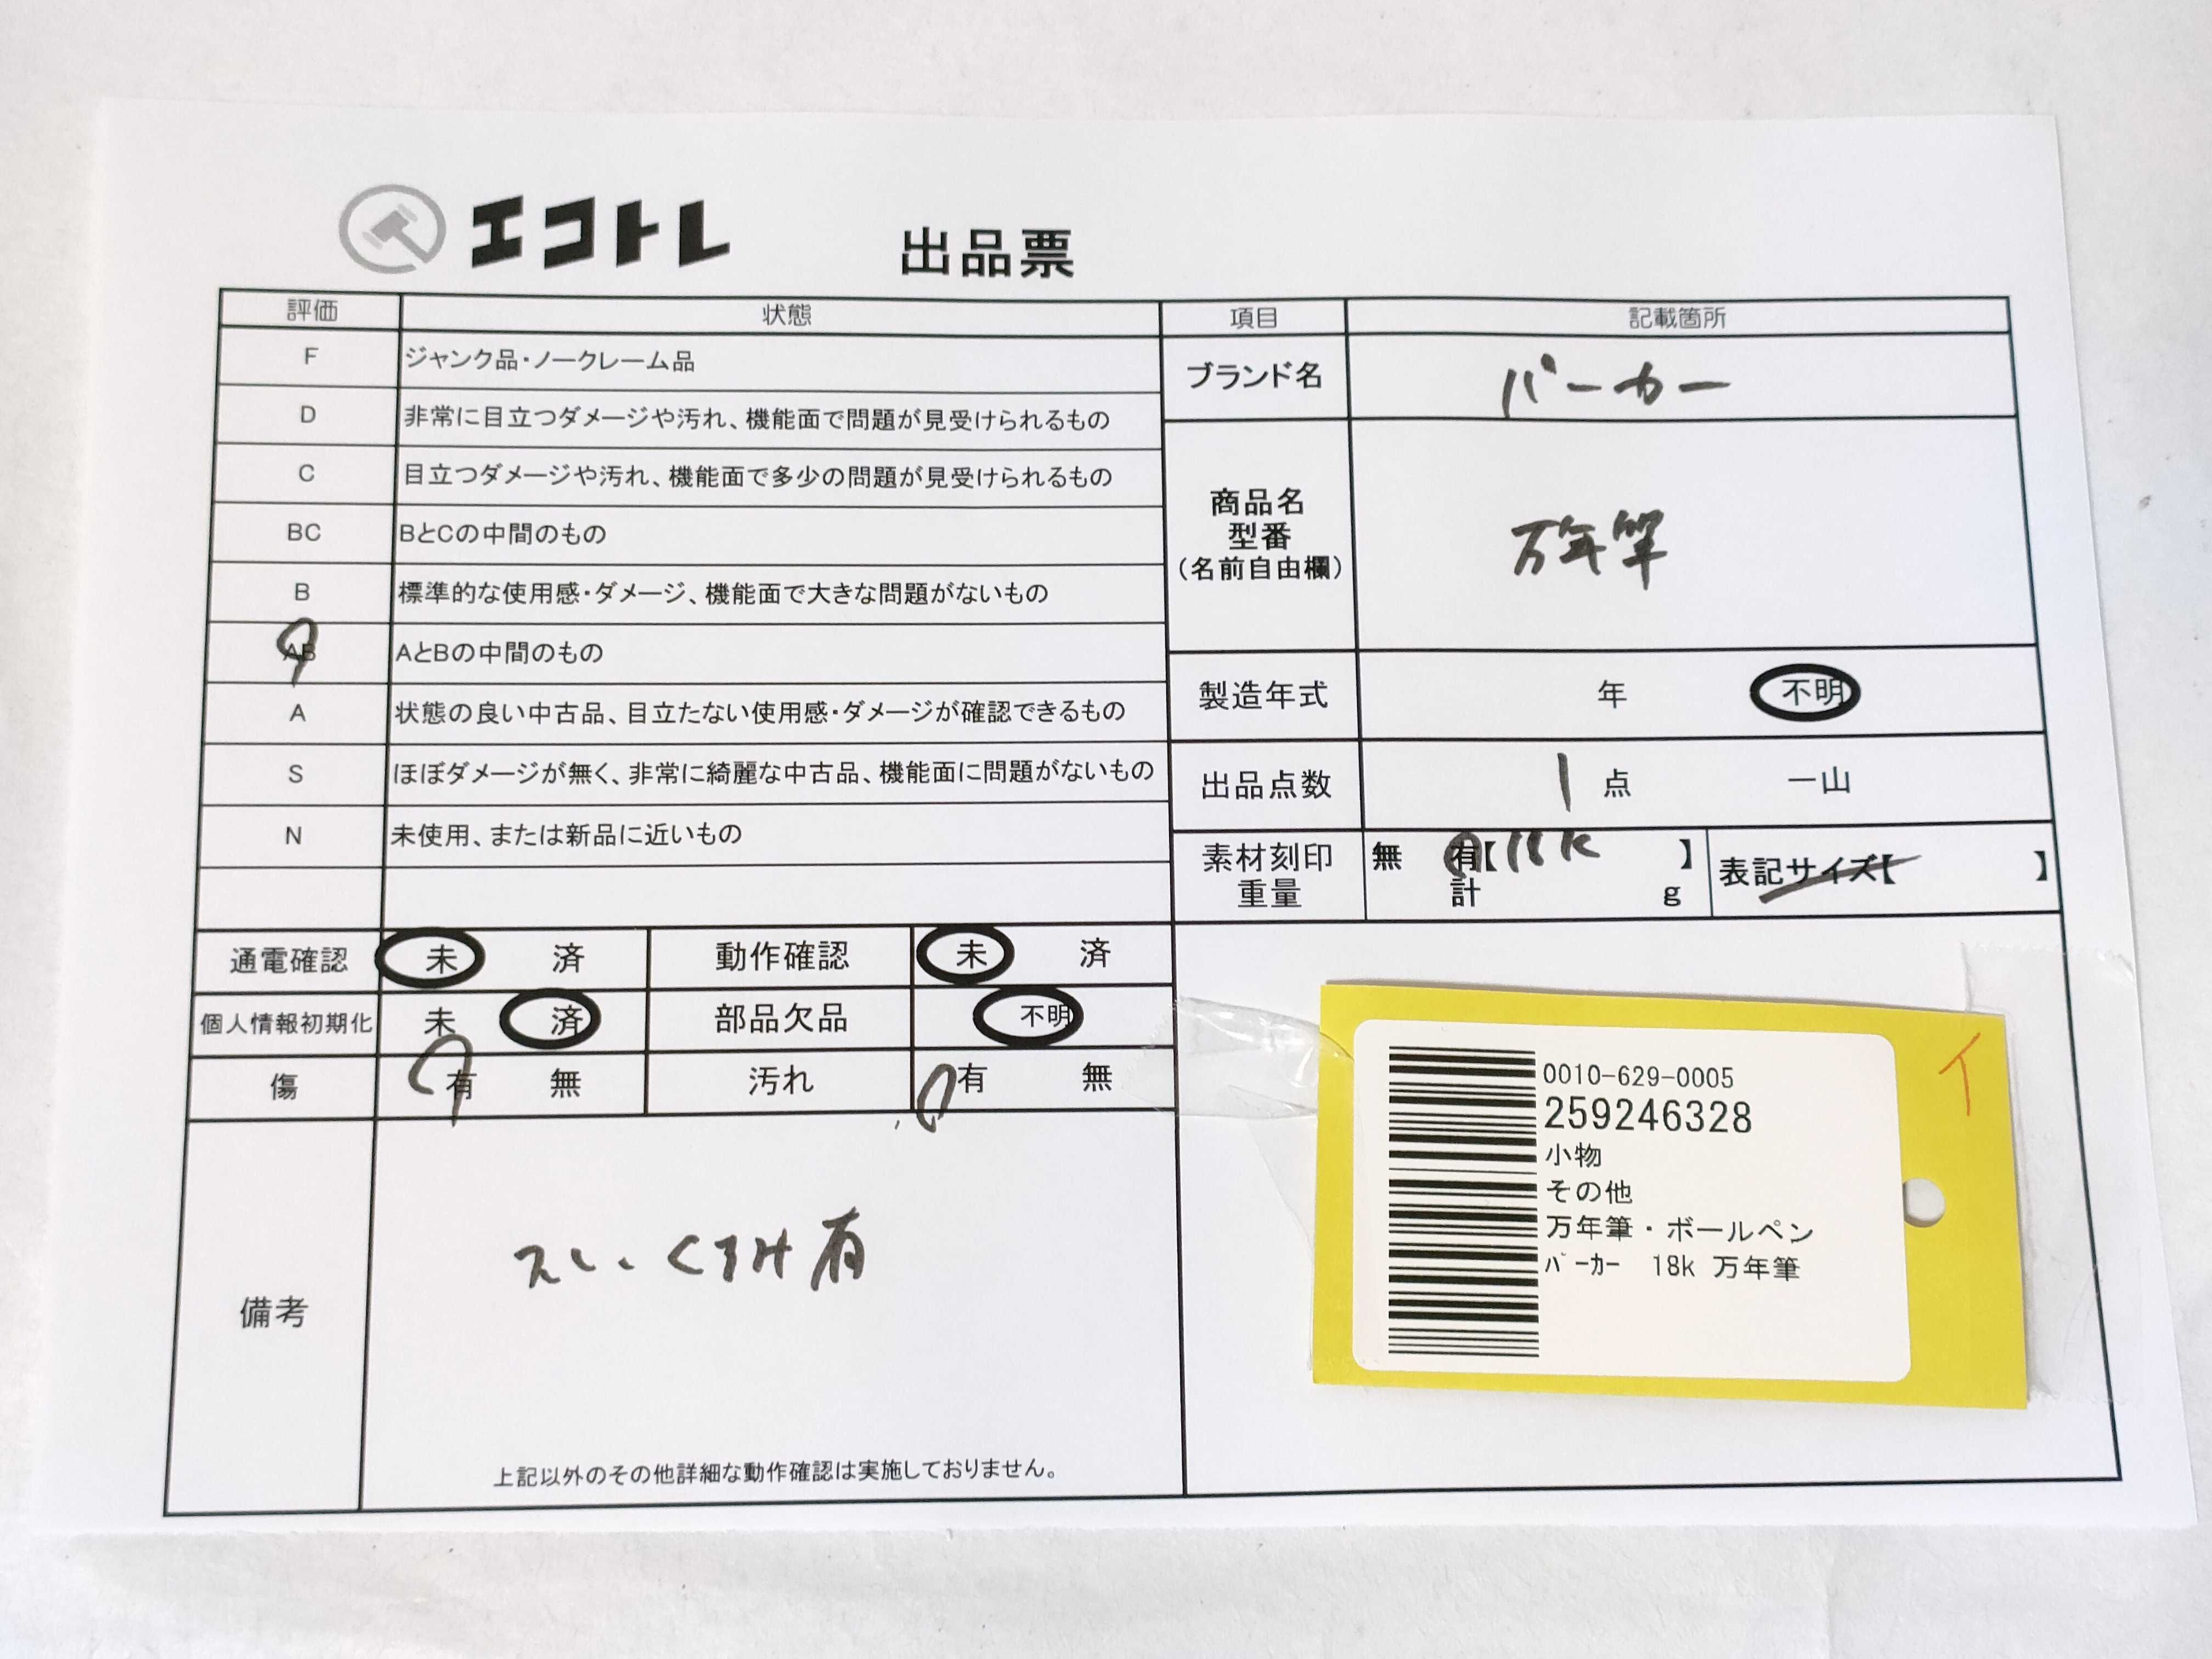 エコトレ 出品票
評価 状態 項目 記載箇所
F ジャンク品・ノークレーム品
D 非常に目立つダメージや汚れ、機能面で問題が見受けられるもの
C 目立つダメージや汚れ、機能面で多少の問題が見受けられるもの
BC BとCの中間のもの
B 標準的な使用感・ダメージ、機能面で大きな問題がないもの
AB AとBの中間のもの
A 状態の良い中古品、目立たない使用感・ダメージが確認できるもの
S ほぼダメージが無く、非常に綺麗な中古品、機能面に問題がないもの
N 未使用、または新品に近いもの
ブランド名 パーカー
商品名
型番
(名前自由欄)
万年筆
製造年式 年 不明
出品点数 1 点 一山
素材刻印 無 有【18k 】
重量 計 g
表記サイズ【 】
通電確認 未 済 動作確認 未 済
個人情報初期化 未 済 部品欠品 不明
傷 有 無 汚れ 有 無
備考
スレ、くすみ有
上記以外のその他詳細な動作確認は実施しておりません。
0010-629-0005
259246328
小物
その他
万年筆・ボールペン
ﾊﾟｰｶｰ 18k 万年筆
イ